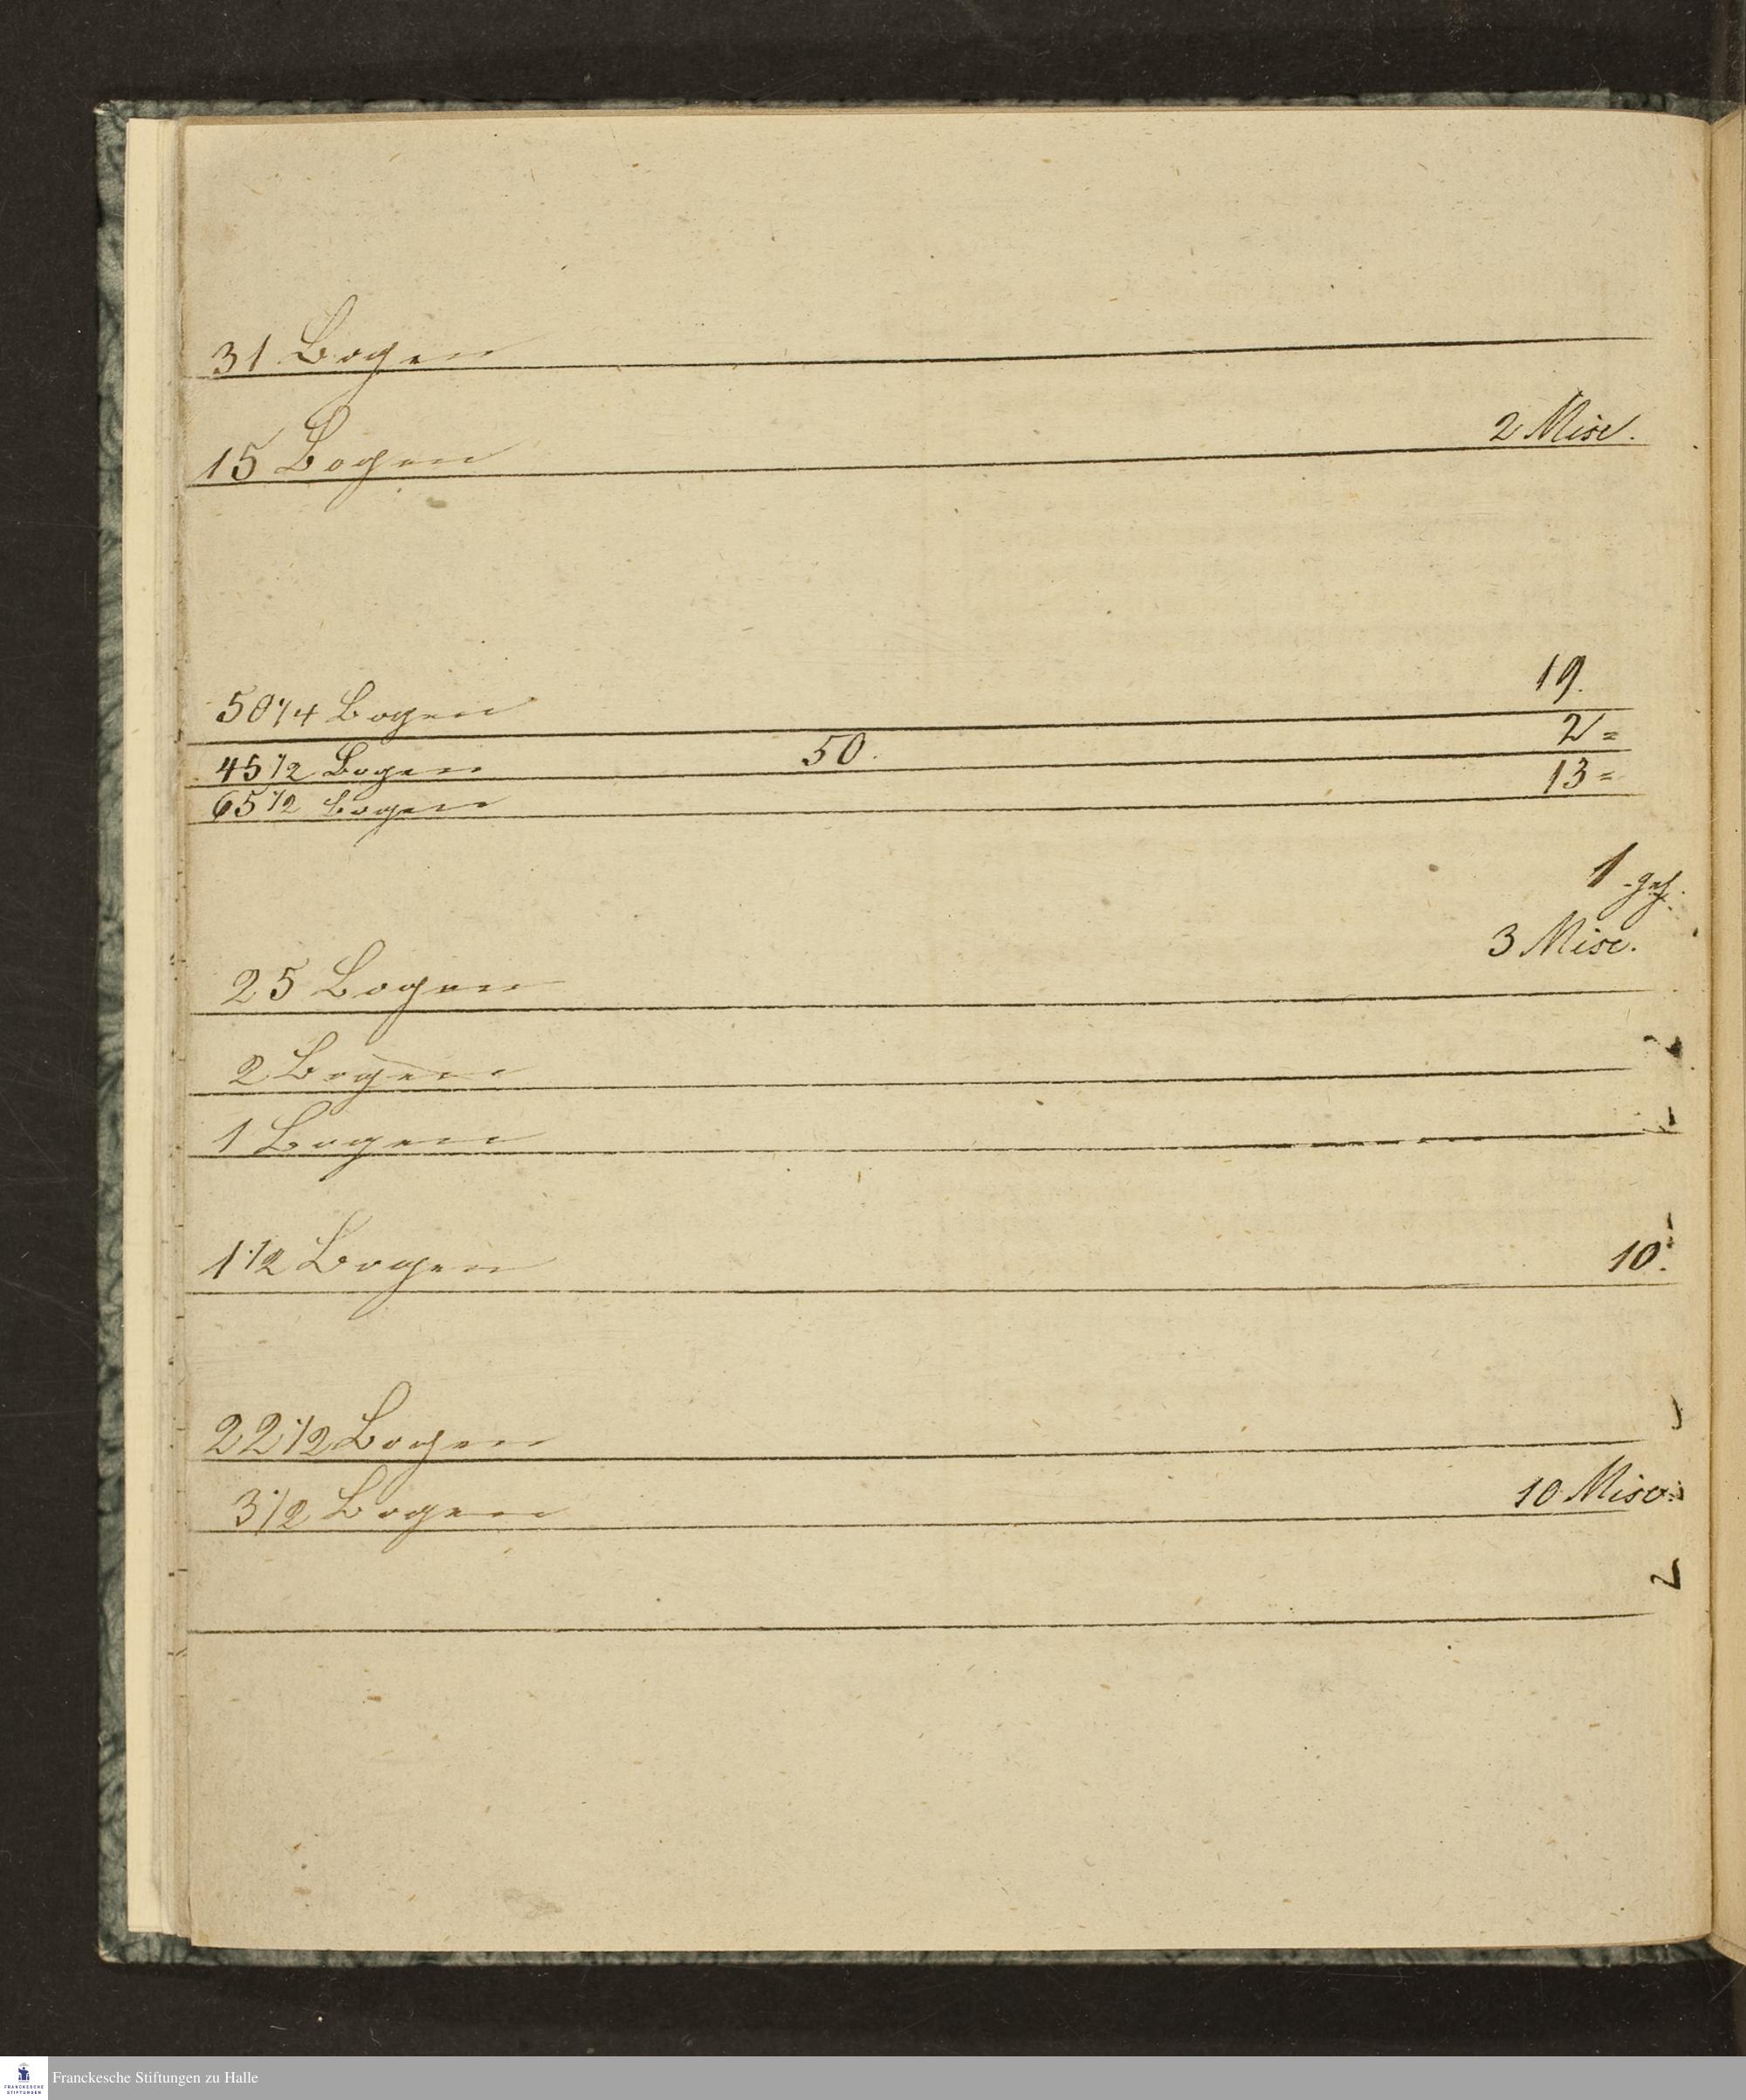 31 Bogen
15 Bogen 2 Misc.
50 1/4 Bogen 19.
45 1/2 Bogen 50. 2 =
65 1/2 Bogen 13 =
1
3 Misc.
25 Bogen
2 Bogen
1 Bogen
1 1/2 Bogen 10.
22 1/2 Bogen
3 1/2 Bogen 10 Misc.
FRANCKESCHE
STIFTUNGEN
Franckesche Stiftungen zu Halle